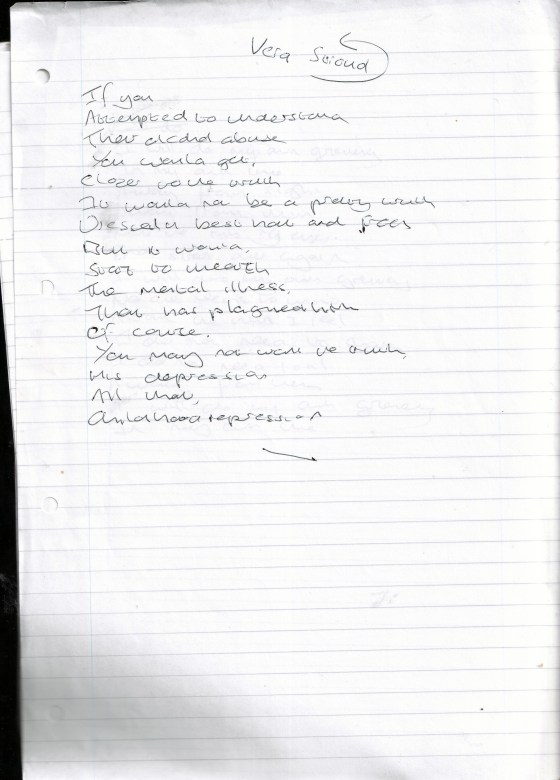 Vera
If you
Attempted to understand
Their alcohol abuse
You would get,
Closer to the truth
It would not be a pretty truth
in best hat and
But it would,
Start to unearth
The mental illness,
That has plagued him
Of course,
You may not want the truth,
His depression
All that,
Childhood repression